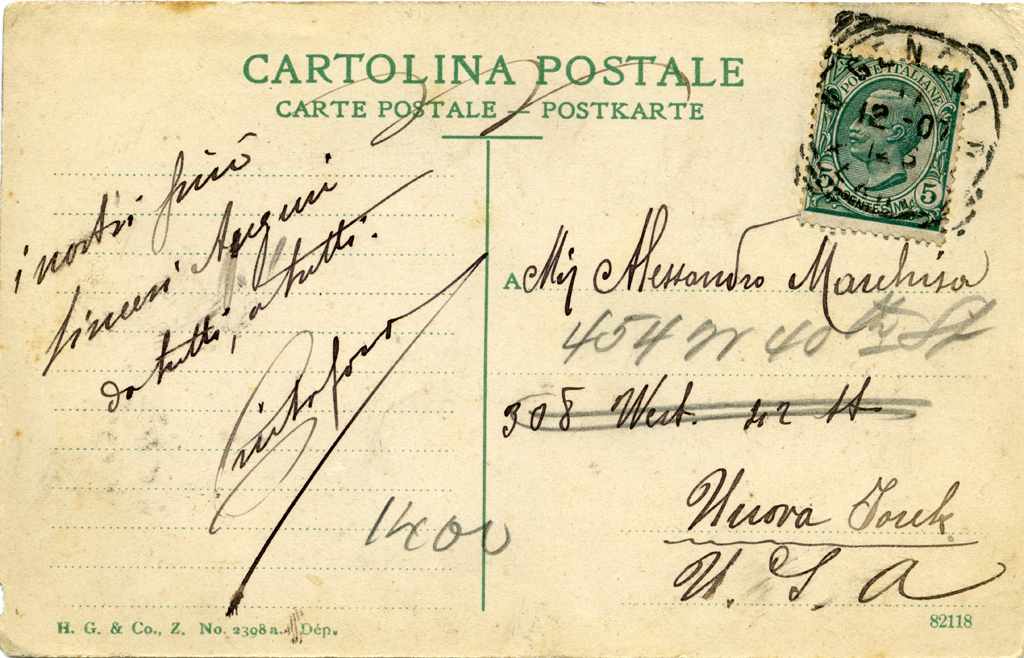 CARTOLINA POSTALE
CARTE POSTALE — POSTKARTE
POSTE ITALIANE
12 - 07
5 5
i nostri più
sinceri Auguri
da tutti, a tutti.
A Mij Alessandro Marchisa
454 W. 40th St
308 West. 42 St
Nuova Jorck
U. S. A
1400
H. G. & Co., Z. No. 2398a. Dép.
82118